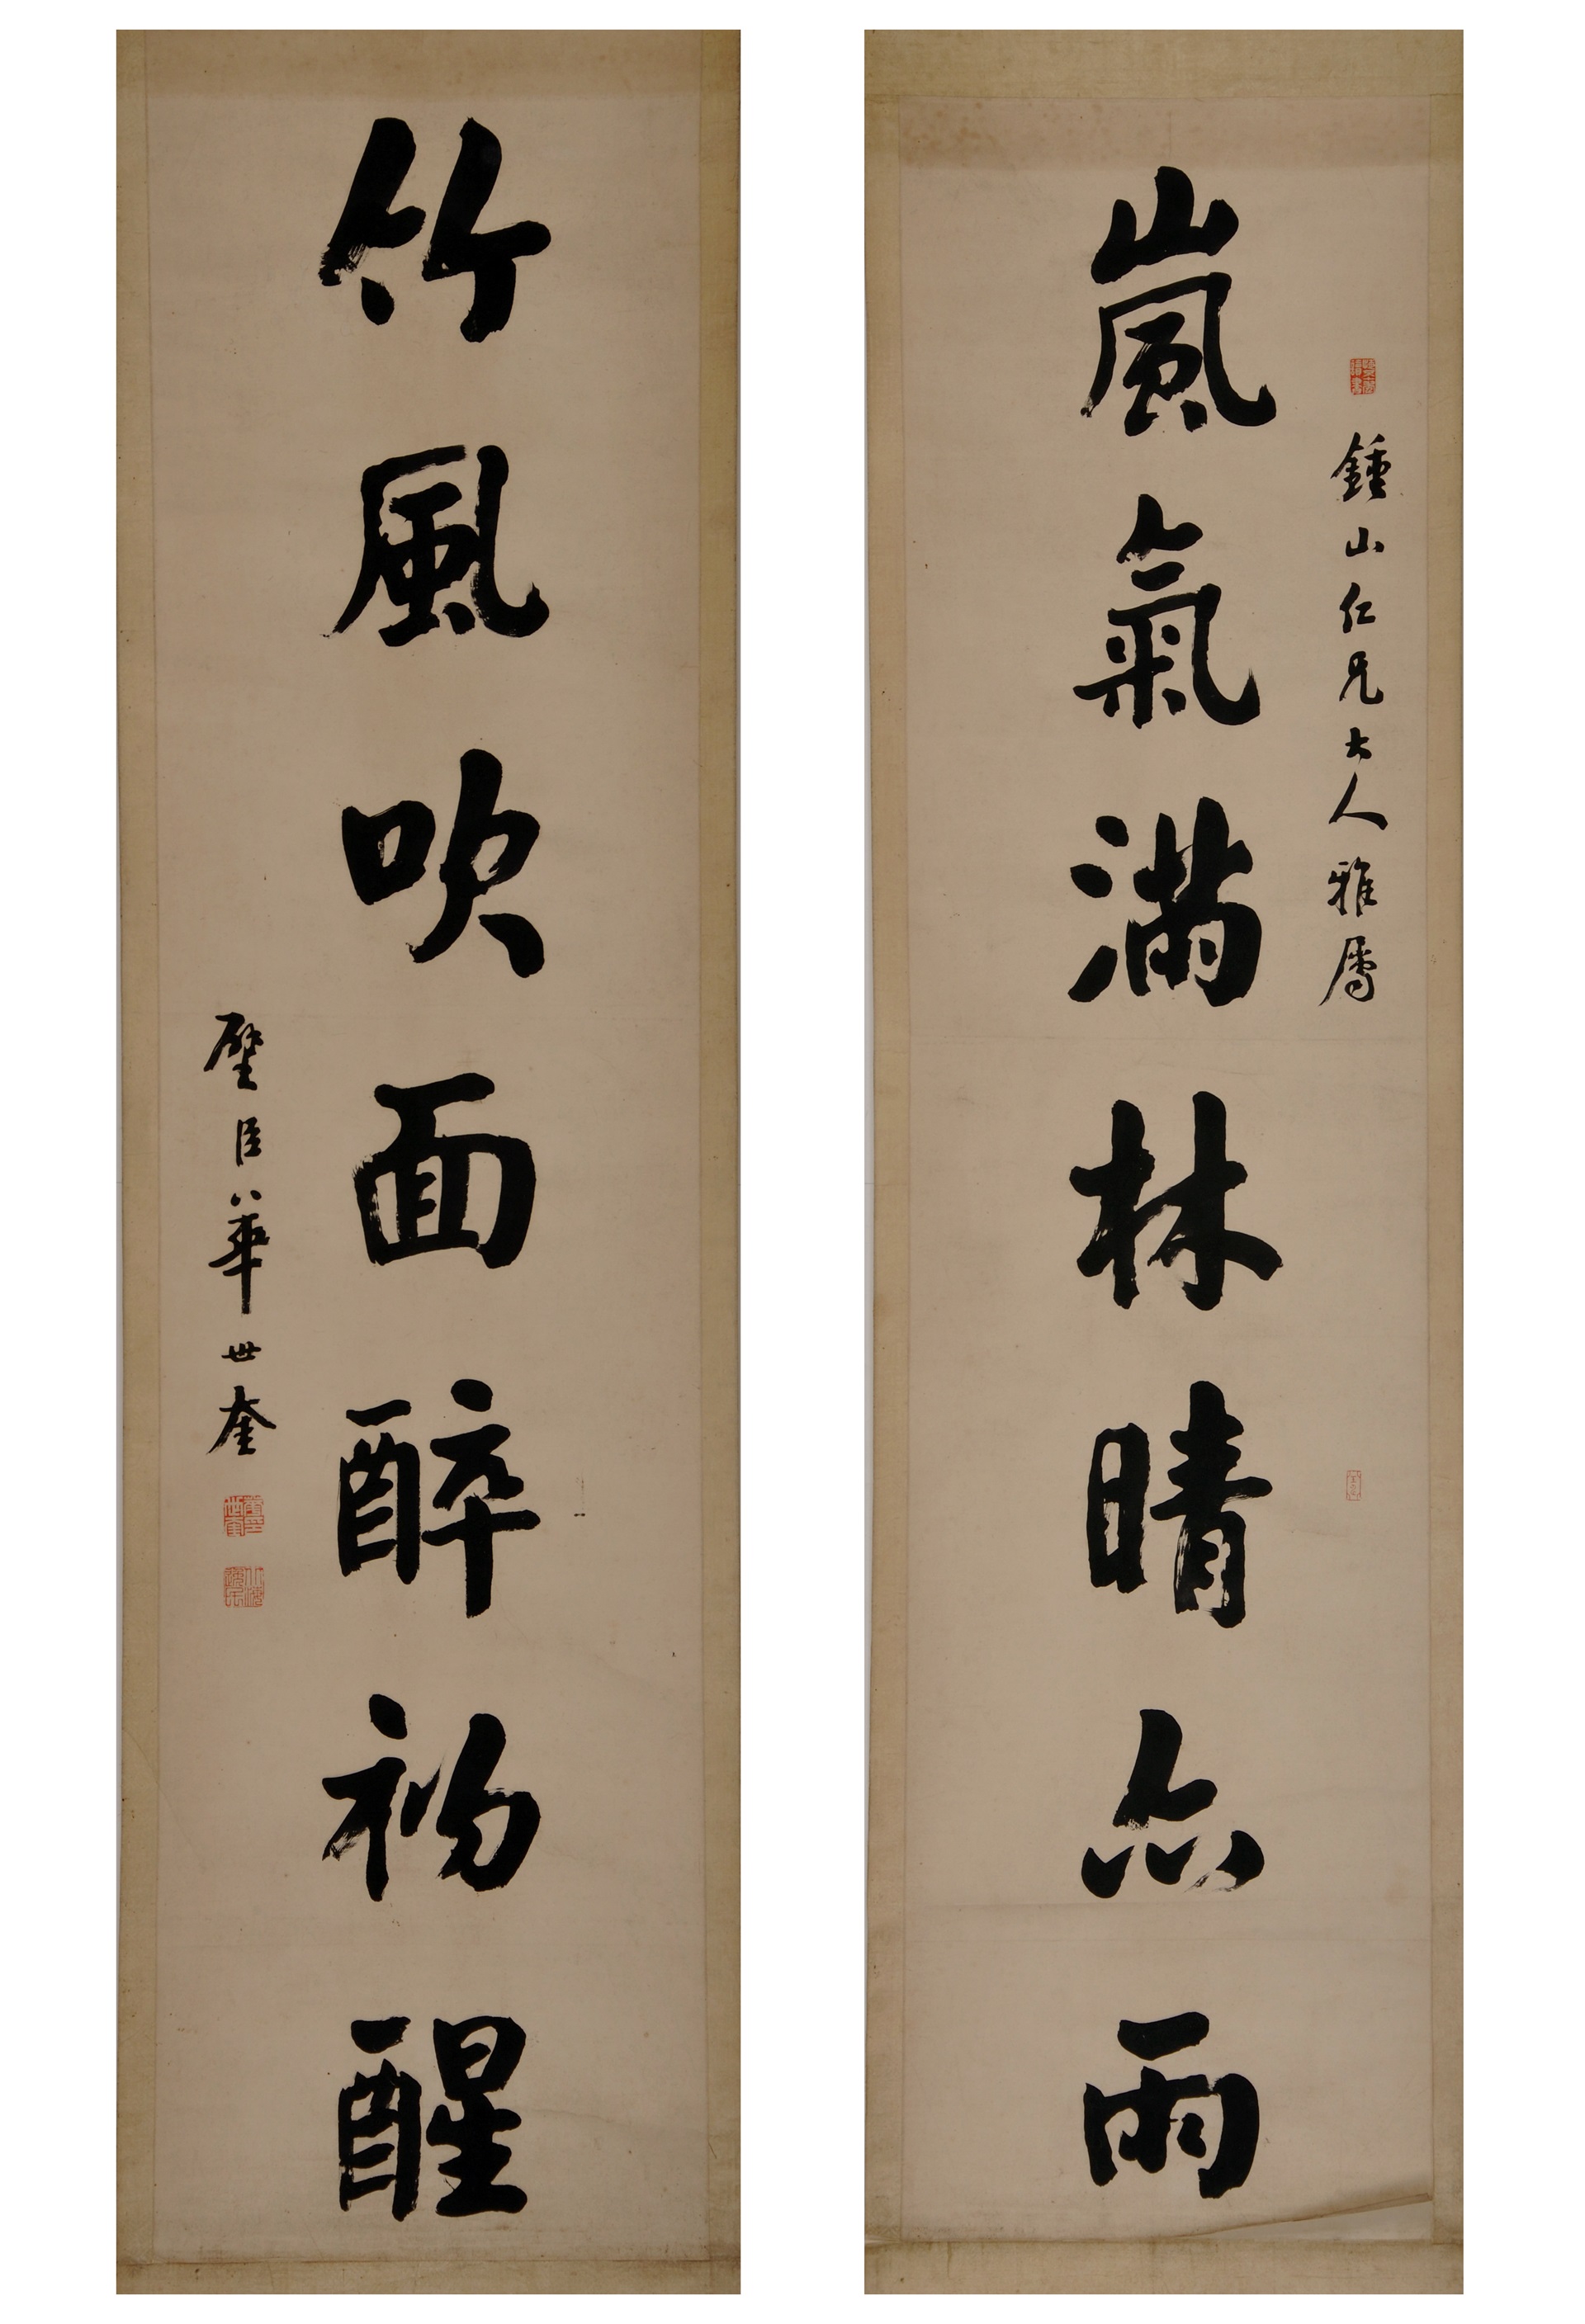 鍾山仁兄大人雅屬
嵐氣滿林晴亦雨
竹風吹面醉初醒
璧臣華世奎